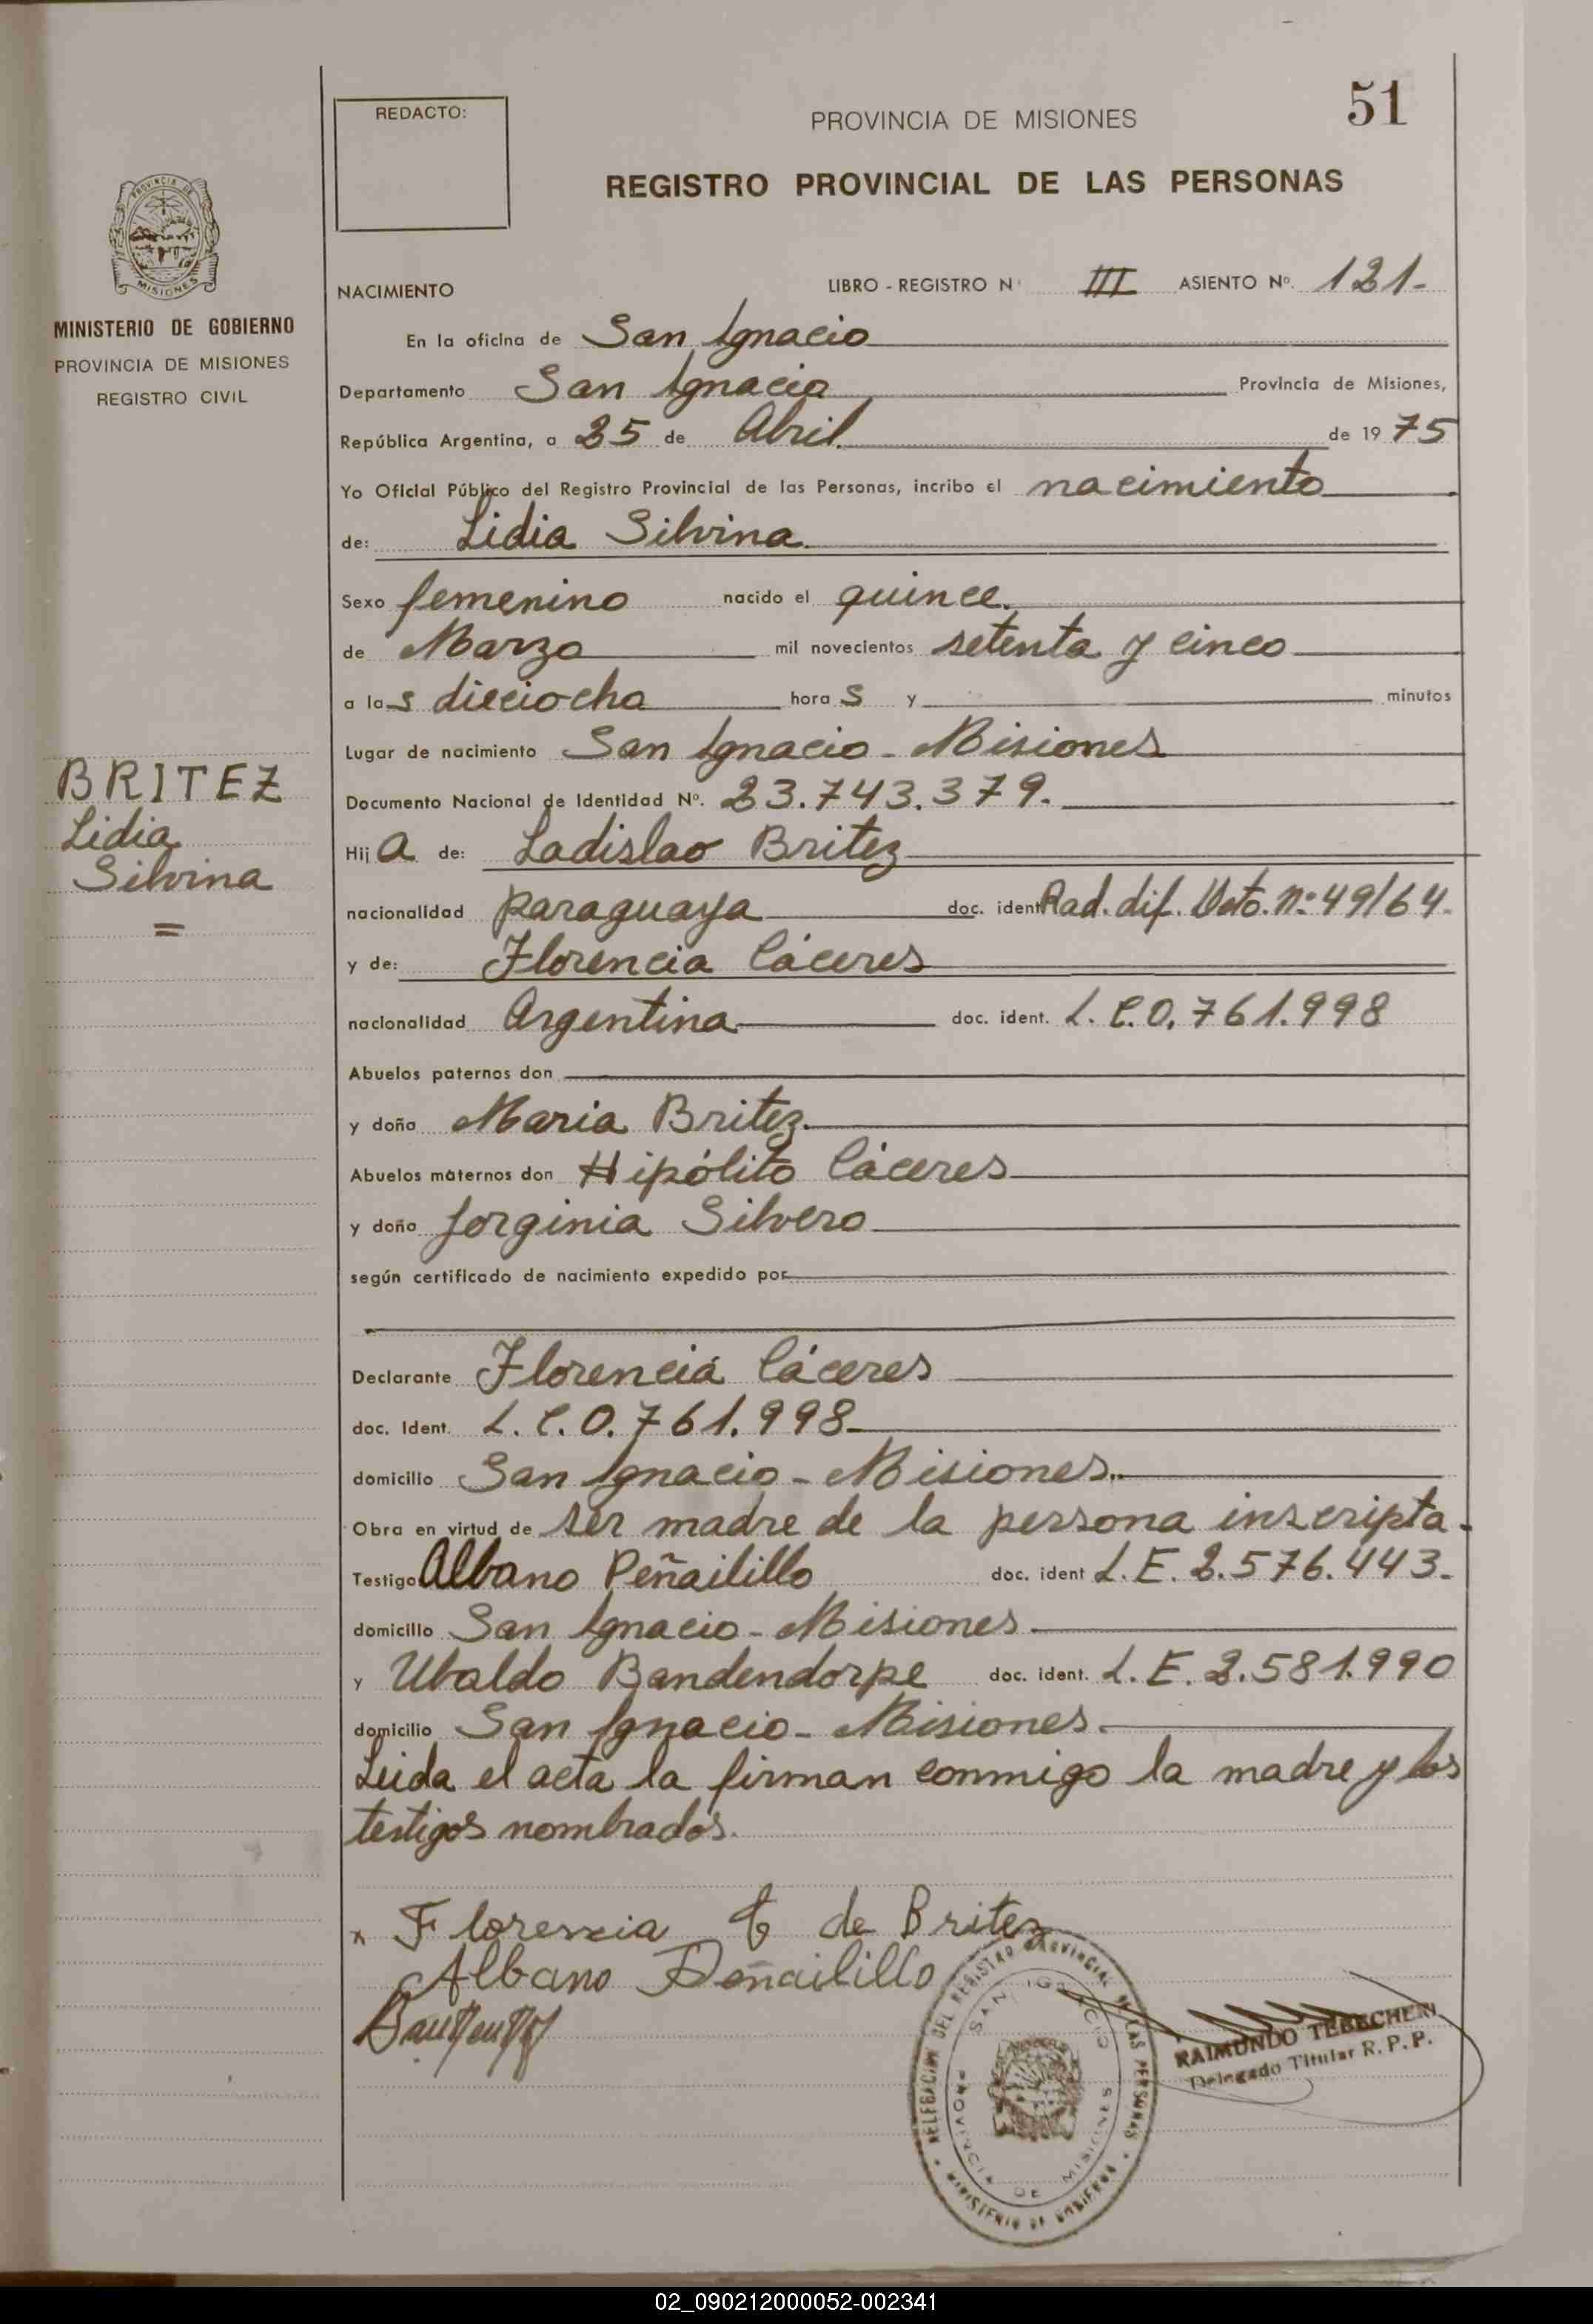 REDACTO:
PROVINCIA DE MISIONES
51
REGISTRO PROVINCIAL DE LAS PERSONAS
PROVINCIA DE
MISIONES
MINISTERIO DE GOBIERNO
PROVINCIA DE MISIONES
REGISTRO CIVIL
NACIMIENTO LIBRO - REGISTRO N III ASIENTO Nº. 121-
En la oficina de San Ignacio
Departamento San Ignacio Provincia de Misiones,
República Argentina, a 25 de Abril de 1975
Yo Oficial Público del Registro Provincial de las Personas, incribo el nacimiento
de: Lidia Silvina
Sexo femenino nacido el quince
de Marzo mil novecientos setenta y cinco
a las dieciocho horas y minutos
Lugar de nacimiento San Ignacio - Misiones
BRITEZ
Lidia
Silvina
=
Documento Nacional de Identidad Nº. 23.743.379.
Hija de: Ladislao Britez
nacionalidad paraguaya doc. ident Rad. dif. Dcto. nº 49/64.
y de: Florencia Cáceres
nacionalidad Argentina doc. ident. L.C.0.761.998
Abuelos paternos don
y doña Maria Britez
Abuelos maternos don Hipólito Cáceres
y doña Jorginia Silvero
según certificado de nacimiento expedido por
Declarante Florencia Cáceres
doc. Ident. L.C.0.761.998
domicilio San Ignacio - Misiones
Obra en virtud de ser madre de la persona inscripta.
Testigo Albano Peñailillo doc. ident L.E. 2.576.443.
domicilio San Ignacio - Misiones
y Ubaldo Bandendorpe doc. ident. L.E. 2.581.990
domicilio San Ignacio - Misiones.
Leida el acta la firman conmigo la madre y los
testigos nombrados.
x Florencia C de Britez
Albano Peñailillo
DELEGACION DEL REGISTRO PROVINCIAL DE LAS PERSONAS
SAN IGNACIO
PROVINCIA DE MISIONES
MINISTERIO DE GOBIERNO
RAIMUNDO TEBECHERI
Delegado Titular R.P.P.
02_090212000052-002341